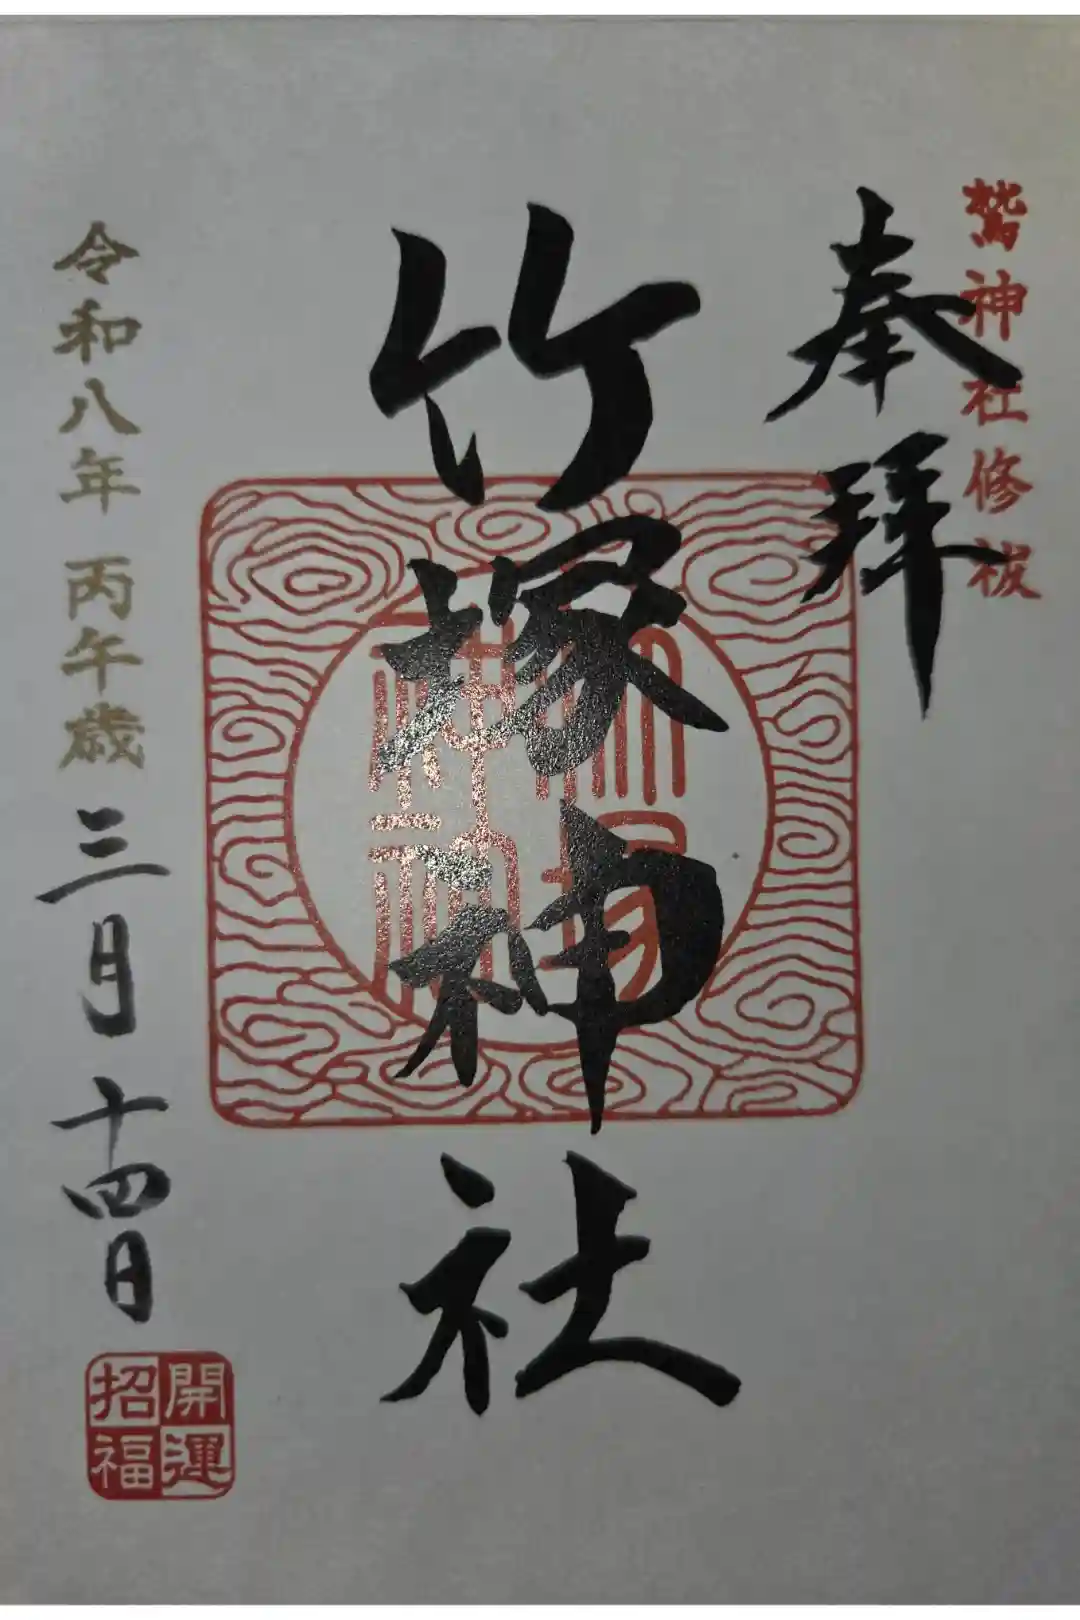 鷲神社修祓
奉拝
竹塚神社
竹塚
神社
令和八年 丙午歳 三月十四日
開運
招福